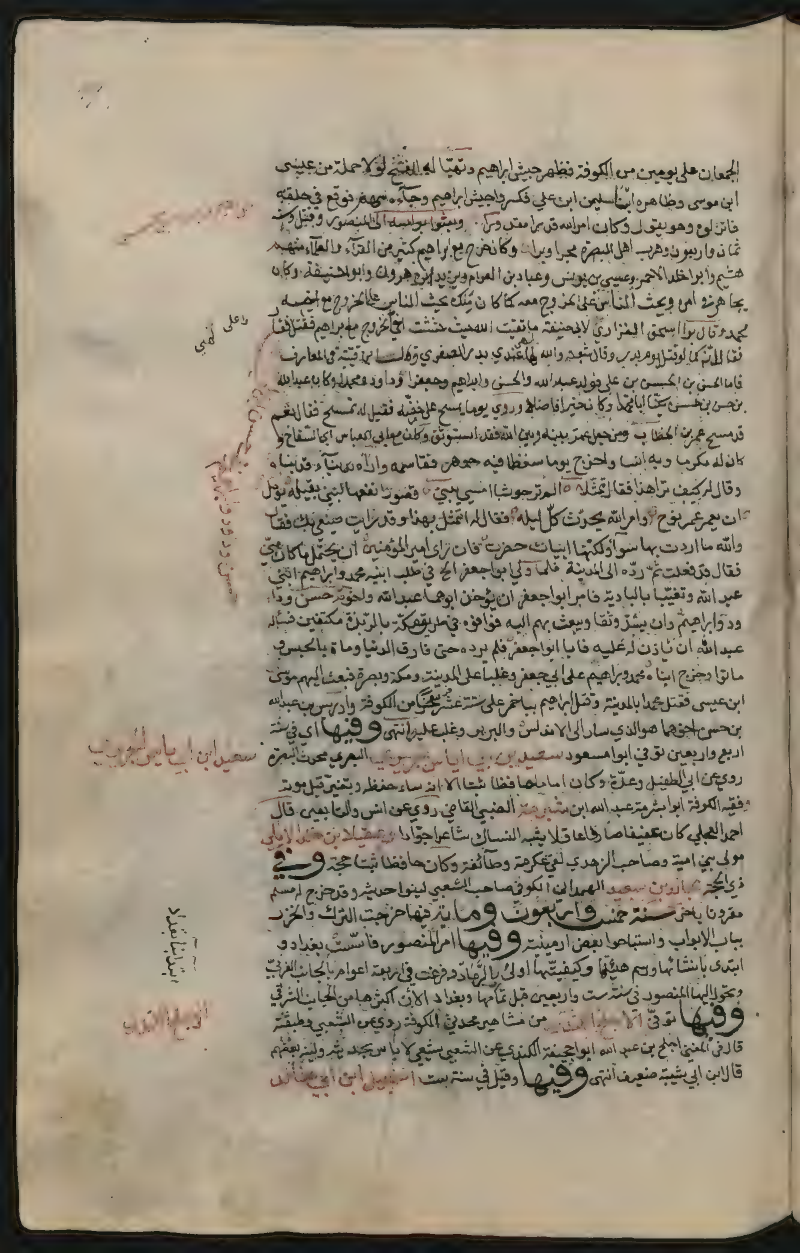 الجمعان على يومين من الكوفة فظهر جيش ابراهيم وتهيا له الفتح لولا حملة من عيسى
ابن موسى وظاهره ابنا سليمن ابن علي فكسروا جيش ابراهيم وجاءه سهم فوقع في حلقه
فانزلوه وهو يقول وكان امر الله قدرا مقدورا وبعثوا براسه الى المنصور وقتل وسنه
ثمان واربعون وهرب اهل البصرة بحرا وبرا وكان خرج مع ابراهيم كثير من القراء والعلماء منهم
هشيم وابو خالد الاحمر وعيسى بن يونس وعباد بن العوام ويزيد بن هرون وابو حنيفة وكان
يجاهر في امره ويحث الناس على الخروج معه كما كان مالك يحث الناس على الخروج مع اخيه
محمد وقال ابو اسحق الفزاري لابي حنيفة ما اتقيت الله حيث حثثت اخي على الخروج مع ابراهيم فقتل
فقال انه كما لو قتل يوم بدر وقال شعبة والله لهي عندي بدر الصغرى وقال ابن قتيبة في المعارف
فاما الحسن بن الحسن بن علي فولد عبدالله والحسن وابراهيم وجعفرا وداود ومحمدا وكان عبدالله
بن حسن بن حسن يكنى ابا محمد وكان خيرا فاضلا وروي يوما يمسح على خفيه فقيل له تمسح فقال نعم
قد مسح عمر بن الخطاب ومن جعل عمر بينه وبين الله فقد استوثق وكان مع ابي العباس السفاح و
كان له مكرما وبه انسا واخرج يوما سفطا فيه جوهر فقاسمه واراه بناء قد بناه
وقال له كيف ترى هذا فقال متمثلا الم تر حوشبا امسى يبني قصورا نفعها لبني بقيلة يؤمل
ان يعمر عمر نوح وامر الله يحدث كل ليلة فقال له اتتمثل بهذا وقد رايت صنيعي بك فقال
والله ما اردت بها سوا ولكنها ابيات حضرت فان راى امير المؤمنين ان يحتمل ما كان مني
فقال قد فعلت ثم رده الى المدينة فلما ولي ابو جعفر الح في طلب ابنيه محمد وابراهيم ابني
عبد الله وتغيبا بالبادية فامر ابو جعفر ان يؤخذ ابوهما عبد الله واخوته حسن ودا
ود وابراهيم وان يشدوا وثاقا ويبعث بهم اليه فوافوه في طريق مكة بالربذة مكتفين فساله
عبد الله ان ياذن له عليه فابا ابو جعفر فلم يره حتى فارق الدنيا ومات بالحبس و
ماتوا وخرج ابناه محمد وابراهيم على ابي جعفر وغلبا على المدينة ومكة وبصرة فبعث اليهم موسى
ابن عيسى فقتل محمدا بالمدينة وقتل ابراهيم بباخمرى على ستة عشر فرسخا من الكوفة وادريس بن عبد الله
بن حسن اخوهما هو الذي سار الى الاندلس والبربر وغلب عليه انتهى وفيها اي في سنة
اربع واربعين توفي ابو مسعود سعيد بن ابي اياس الجريري البصري محدث البصرة
روى عن ابي الطفيل وعدة وكان اماما حافظا ثبتا الا انه ساء حفظه وتغير قبل موته
وفقيه الكوفة ابو شبرمة عبد الله ابن شبرمة الضبي القاضي روى عن انس والتابعين قال
احمد العجلي كان عفيفا صارما عاقلا يشبه النساك شاعرا جوادا وعقيل بن خالد الايلي
مولى بني امية وصاحب الزهري لقي عكرمة وطائفة وكان حافظا ثبتا حجة وفي
ذي الحجة مجالد بن سعيد الهمداني الكوفي صاحب الشعبي لينوا حديثه وقد خرج له مسلم
مقرونا باخر سنة خمس واربعون ومايه فيها خرجت الترك والخزر
بباب الابواب واستباحوا بعض ارمينية وفيها امر المنصور فاسست بغداد و
ابتدى بانشائها ورسم هيئتها وكيفيتها اولا بالرماد وفرغت في اربعة اعوام بالجانب الغربي
وتحول اليها المنصور في سنة ست واربعين قبل تمامها وبغداد الان اكثرها من الجانب الشرقي
وفيها توفي الاجلح الكندي من مشاهير محدثي الكوفة روى عن الشعبي وطبقته
قال في المغني اجلح بن عبد الله ابو حجية الكندي عن الشعبي شيعي لا باس بحديثه ولينه بعضهم
قال ابن ابي شيبة ضعيف انتهى وفيها وقيل في سنة ست اسمعيل ابن ابي خالد
سعيد ابن ابي اياس الجريري
ابتدا بنا بغداد
الاجلح الكندي